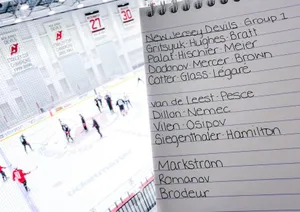 27
30
New Jersey Devils: Group 1
Gritsyuk-Hughes-Bratt
Palat-Hischier-Meier
Dadonov-Mercer-Brown
Cotter-Glass-Legare
van de Leest-Pesce
Dillon-Nemec
Vilen-Osipov
Siegenthaler-Hamilton
Markstrom
Romanov
Brodeur